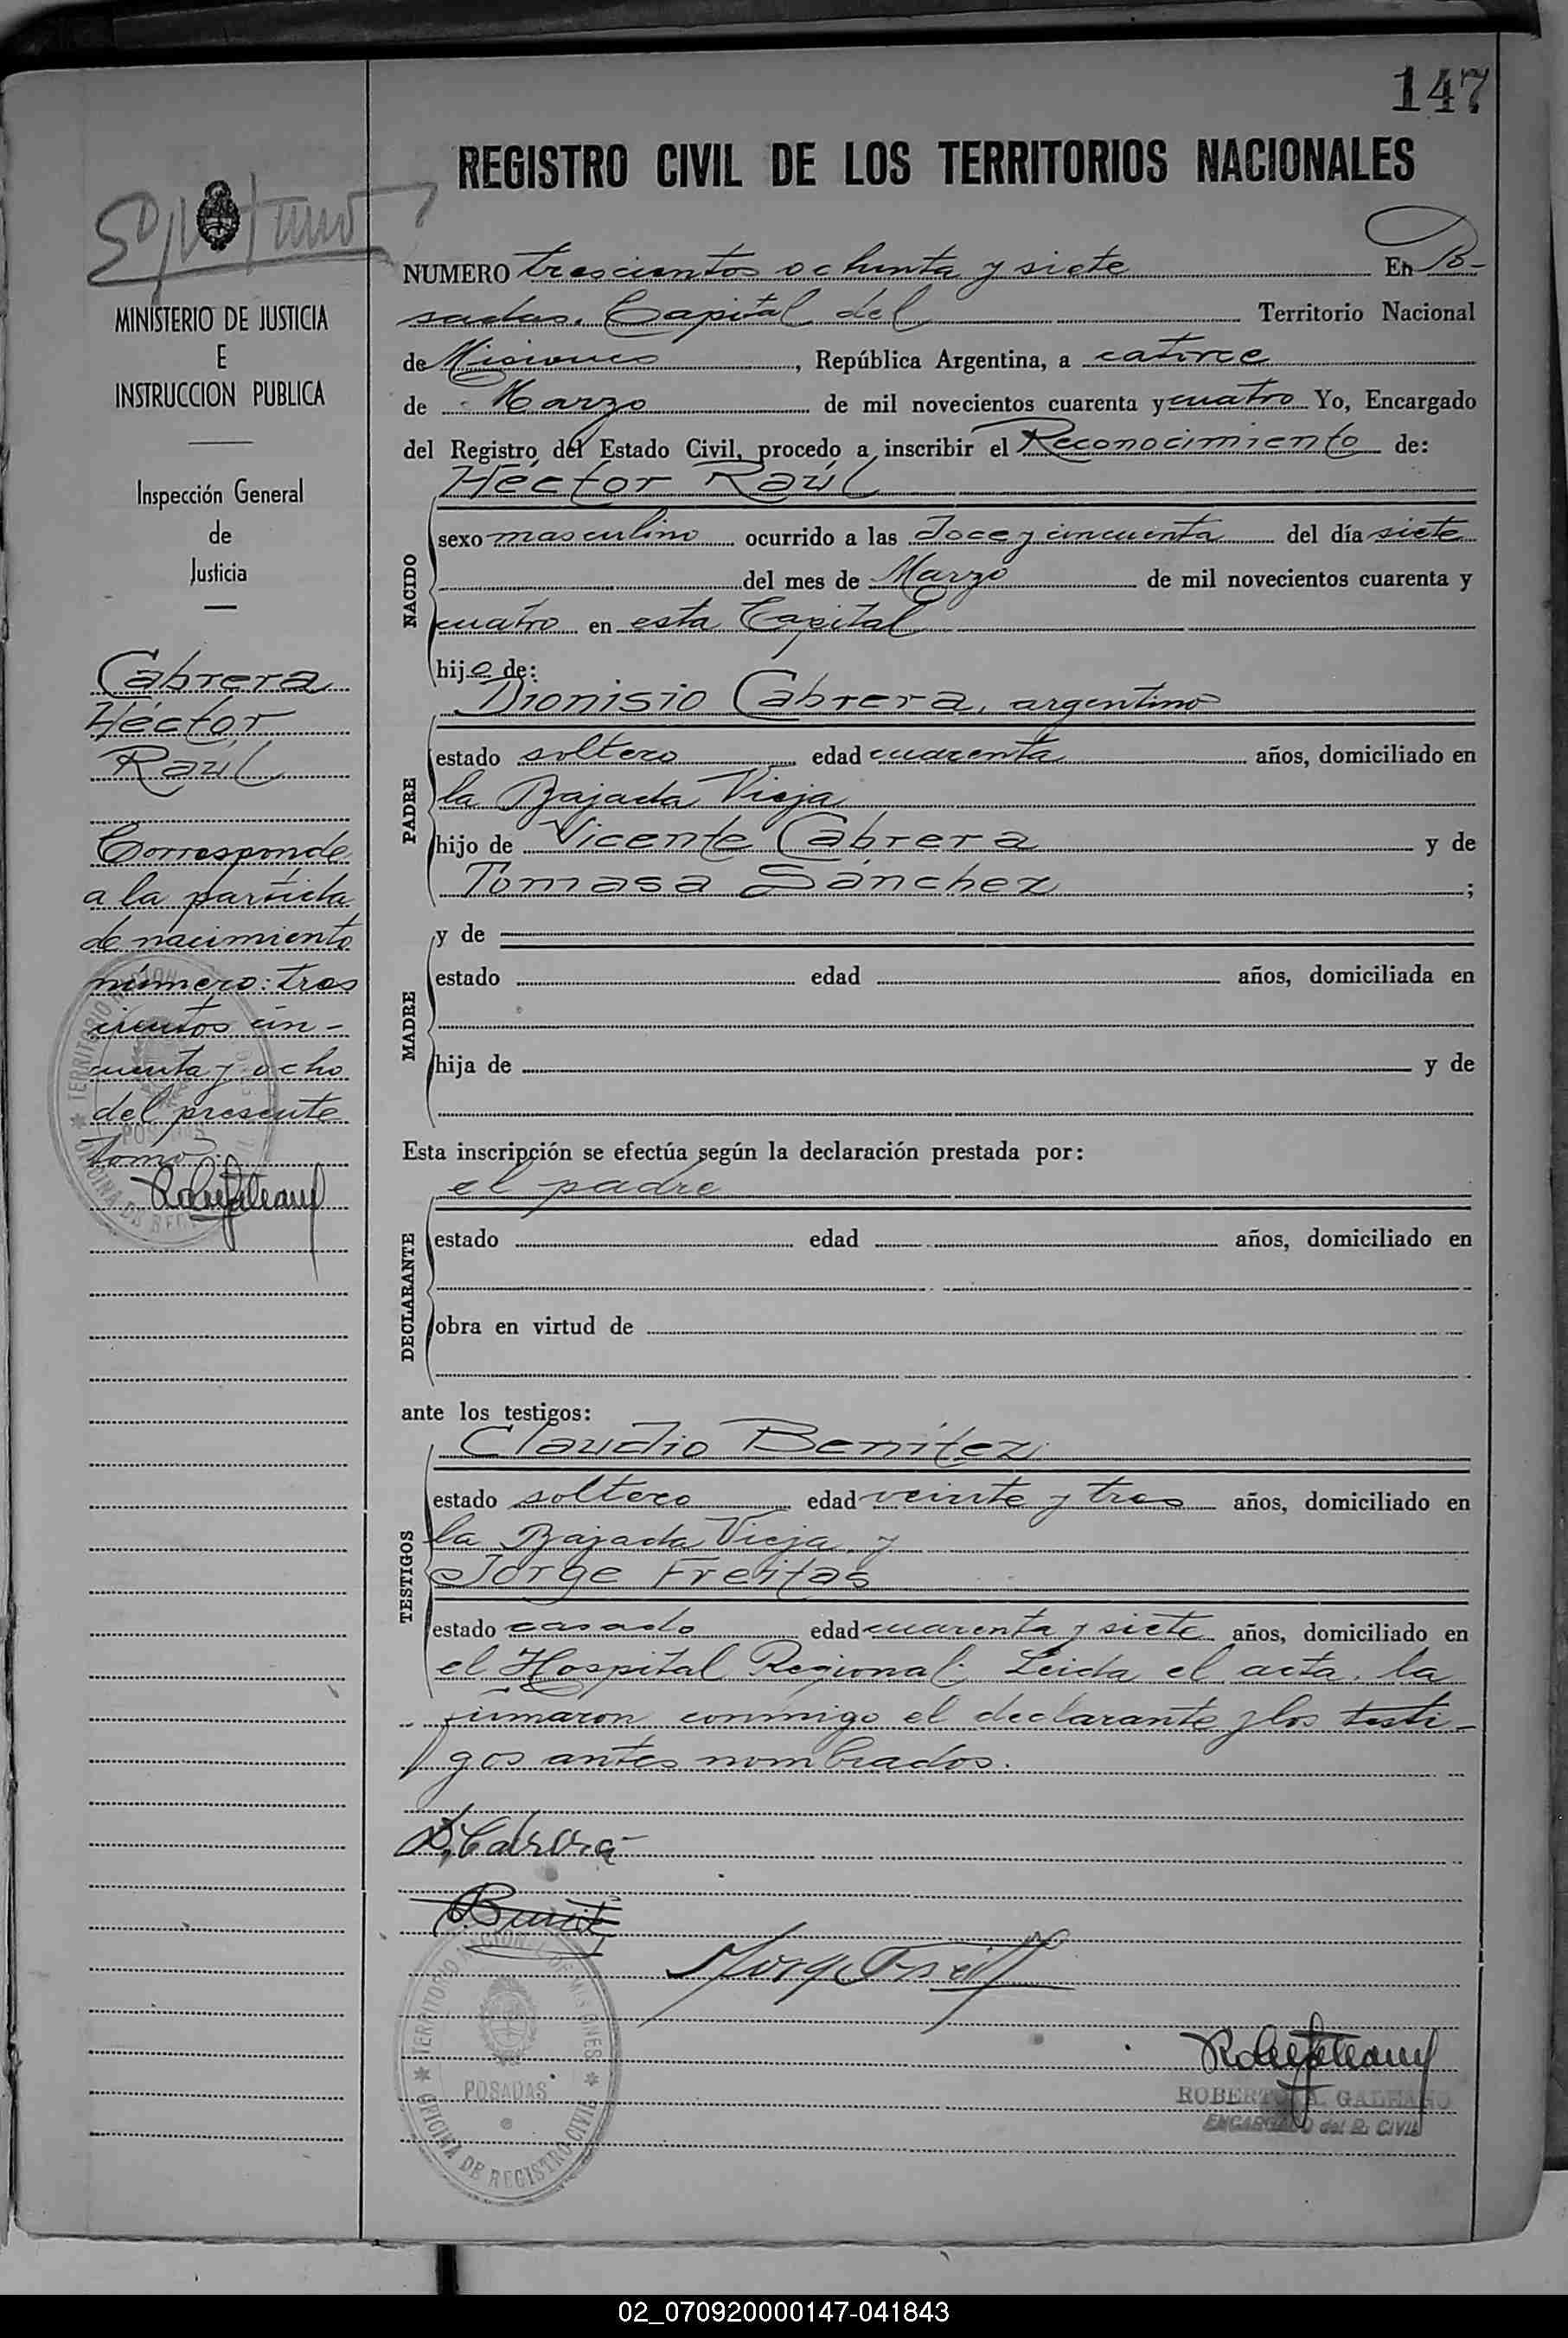 147
REGISTRO CIVIL DE LOS TERRITORIOS NACIONALES
MINISTERIO DE JUSTICIA
E
INSTRUCCION PUBLICA
Inspección General
de
Justicia
Cabrera
Héctor
Raúl
Corresponde
a la partida
de nacimiento
número: tres
cientos cin-
cuenta y ocho
del presente
tomo.
NUMERO trescientos ochenta y siete En Po-
sadas, Capital del Territorio Nacional
de Misiones, República Argentina, a catorce
de Marzo de mil novecientos cuarenta y cuatro Yo, Encargado
del Registro del Estado Civil, procedo a inscribir el Reconocimiento de:
Héctor Raúl
NACIDO
sexo masculino ocurrido a las doce y cincuenta del día siete
del mes de Marzo de mil novecientos cuarenta y
cuatro en esta Capital
hijo de:
Dionisio Cabrera, argentino
PADRE
estado soltero edad cuarenta años, domiciliado en
la Bajada Vieja
hijo de Vicente Cabrera y de
Tomasa Sánchez;
MADRE
y de
estado edad años, domiciliada en
hija de y de
Esta inscripción se efectúa según la declaración prestada por:
el padre
DECLARANTE
estado edad años, domiciliado en
obra en virtud de
ante los testigos:
Claudio Benítez
TESTIGOS
estado soltero edad veinte y tres años, domiciliado en
la Bajada Vieja y
Jorge Freitas
estado casado edad cuarenta y siete años, domiciliado en
el Hospital Regional. Leida el acta, la
firmaron conmigo el declarante y los testi-
gos antes nombrados.
D. Cabrera
TERRITORIO NACIONAL DE MISIONES
POSADAS
OFICINA DE REGISTRO CIVIL
ROBERTO A. GALEANO
ENCARGADO del R. CIVIL
02_070920000147-041843